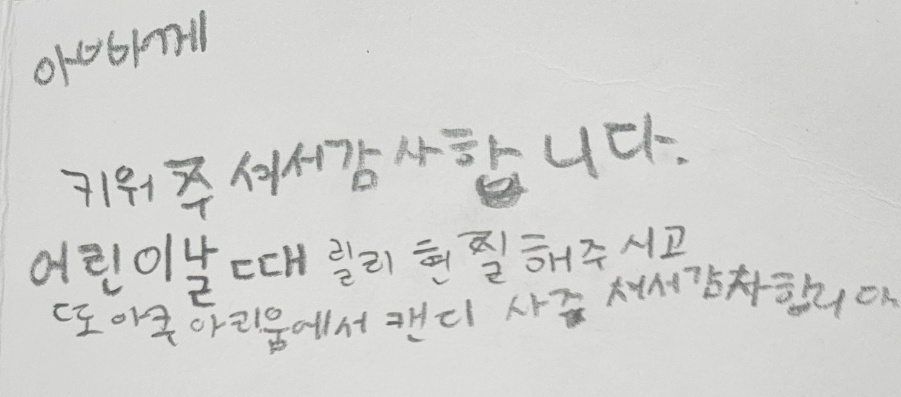 아빠에게
키워주셔서감사합니다.
어린이날 때 릴리 현질해주시고
또 아쿠아리움에서 캔디 사주셔서감차합니다